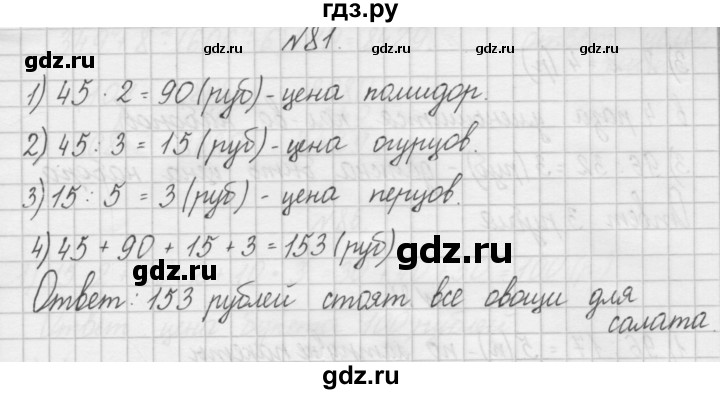 гдз.ру
№81.
1) 45 · 2 = 90 (руб) - цена помидор.
2) 45 : 3 = 15 (руб) - цена огурцов.
3) 15 : 5 = 3 (руб) - цена перцов.
4) 45 + 90 + 15 + 3 = 153 (руб)
Ответ: 153 рублей стоят все овощи для
салата.
gdz.ru
gdz.ru
gdz.ru
gdz.ru
gdz.ru
gdz.ru
gdz.ru
gdz.ru
gdz.ru
gdz.ru
gdz.ru